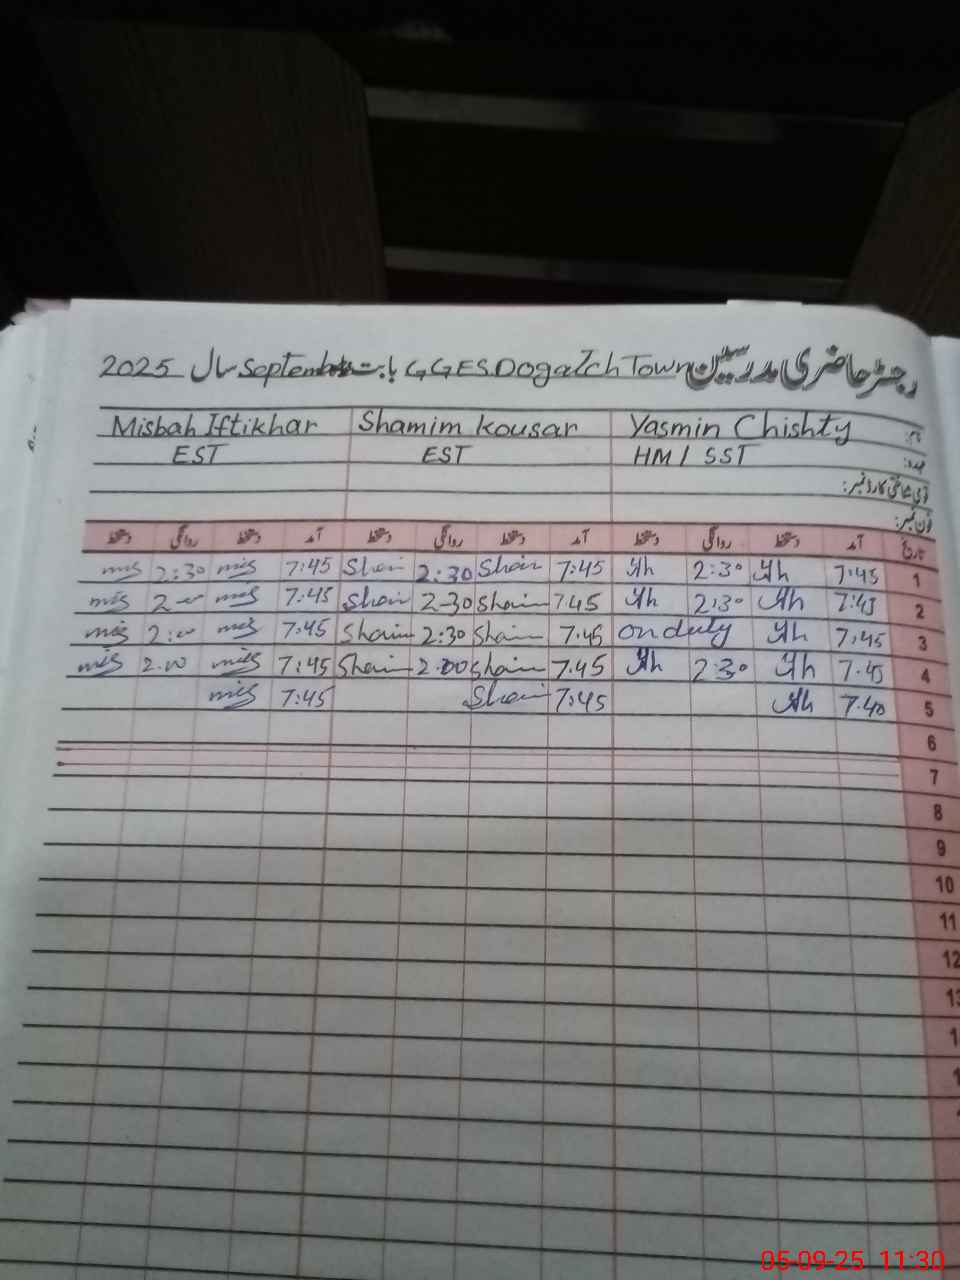 رجسٹر حاضری مدرسین GGES Dogaich Town بابت September سال 2025
نام: Yasmin Chishty Shamim Kousar Misbah Iftikhar
عہدہ: HM / SST EST EST
قومی شناختی کارڈ نمبر:
فون نمبر:
تاریخ آمد دستخط روانگی دستخط آمد دستخط روانگی دستخط آمد دستخط روانگی دستخط
1 7:45 2:30 7:45 Sham 2:30 Sham 7:45 mis 2:30 mis
2 7:45 2:30 7:45 Sham 2:30 Sham 7:45 mis 2:00 mis
3 7:45 on duty 7:45 Sham 2:30 Sham 7:45 mis 2:00 mis
4 7:45 2:30 7:45 Sham 2:00 Sham 7:45 mis 2:00 mis
5 7:40 7:45 Sham 7:45 mis
6
7
8
9
10
11
12
05-09-25 11:30